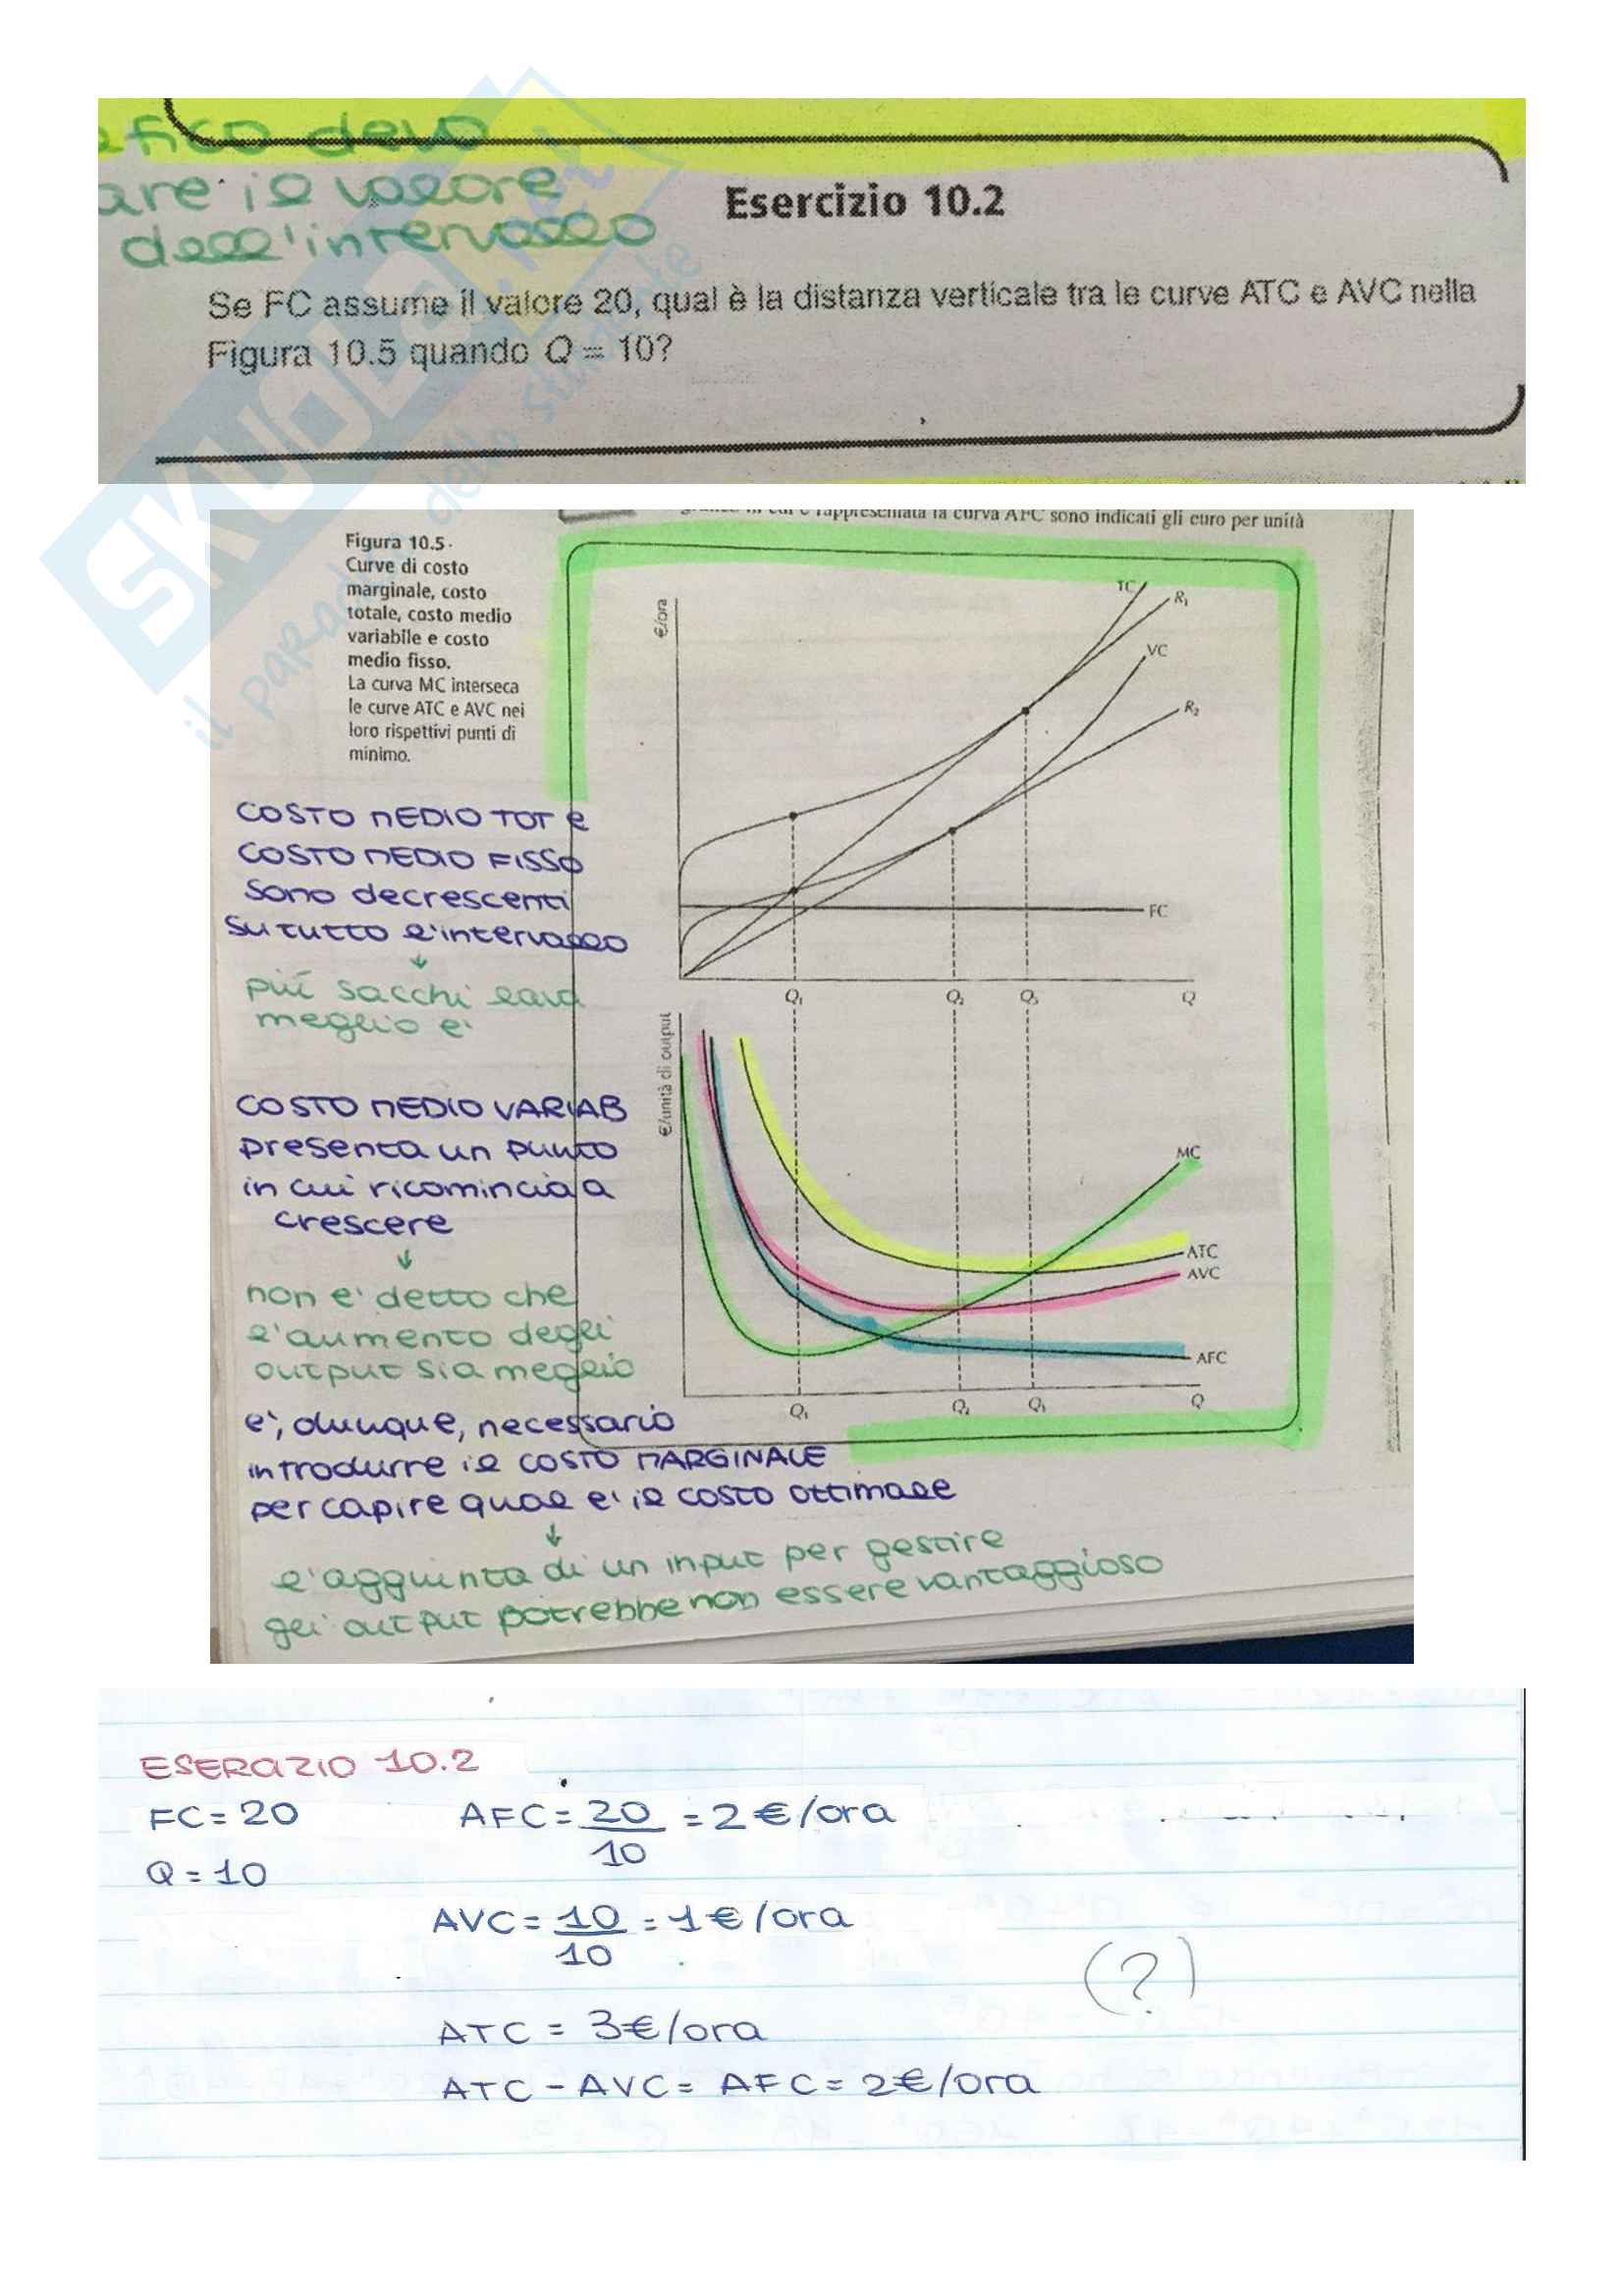 efico devo
are il valore
dell'intervallo
Esercizio 10.2
Se FC assume il valore 20, qual è la distanza verticale tra le curve ATC e AVC nella
Figura 10.5 quando Q = 10?
SKUOLA
.net
il paradiso dello studente
rappresentata la curva AFC sono indicati gli euro per unità
Figura 10.5
Curve di costo
marginale, costo
totale, costo medio
variabile e costo
medio fisso.
La curva MC interseca
le curve ATC e AVC nei
loro rispettivi punti di
minimo.
€/ora
TC
R₁
VC
R₂
FC
Q₁
Q₂
Q₃
Q
COSTO MEDIO TOT e
COSTO MEDIO FISSO
sono decrescenti
su tutto l'intervallo
↓
più sacchi lava
meglio è
€/unità di output
MC
ATC
AVC
AFC
Q₁
Q₂
Q₃
Q
COSTO MEDIO VARIAB
presenta un punto
in cui ricomincia a
crescere
↓
non è detto che
l'aumento degli
output sia meglio
è, dunque, necessario
introdurre il COSTO MARGINALE
per capire qual è il costo ottimale
↓
l'aggiunta di un input per gestire
gli output potrebbe non essere vantaggioso
ESERCIZIO 10.2
FC = 20
AFC = 20/10 = 2 €/ora
Q = 10
AVC = 10/10 = 1 €/ora
(?)
ATC = 3€/ora
ATC - AVC = AFC = 2€/ora